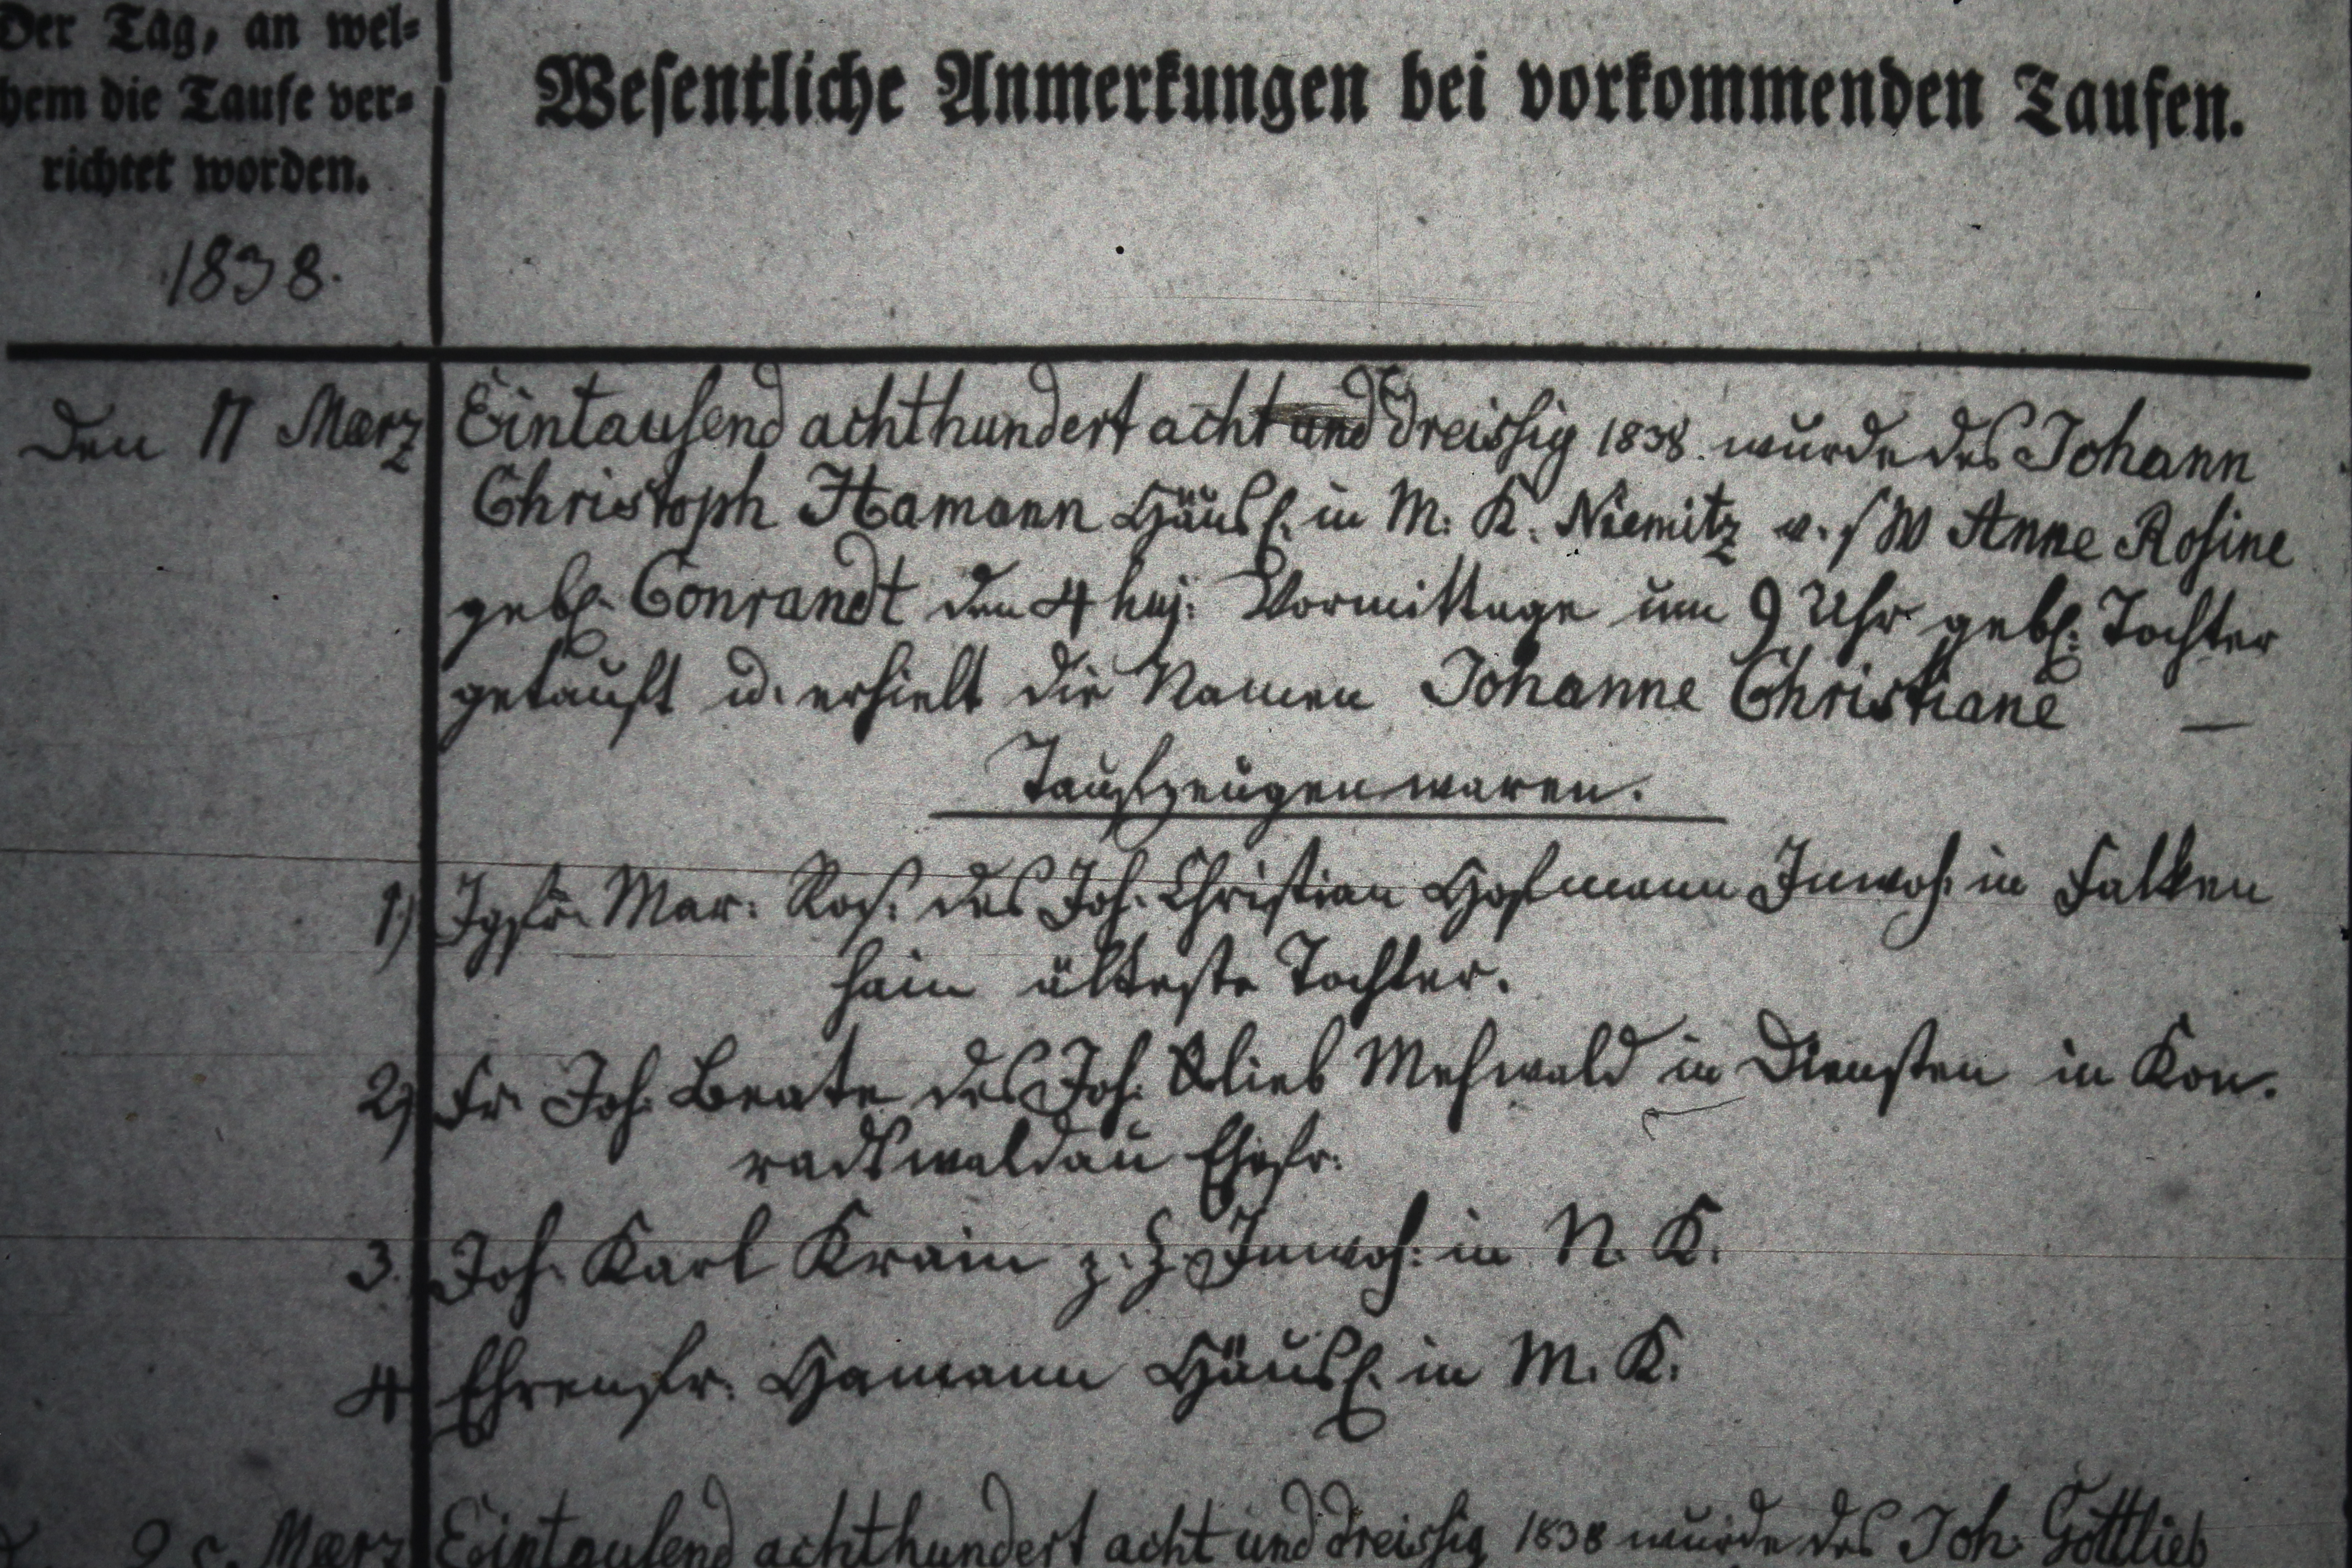 Der Tag, an wel-
chem die Taufe ver-
richtet worden.
1838.
Wesentliche Anmerkungen bei vorkommenden Taufen.
Den 11 Maerz
Eintausend achthundert acht und dreissig 1838. wurde des Johann
Christoph Hamann Häusl. in M. K. Niemitz u. s W Anne Rosine
gebl. Conrandt den 4 huj: Vormittage um 9 Uhr gebl. Tochter
getauft u. erhielt die Namen Johanne Christiane —
Taufzeugen waren.
1.) Jgfr. Mar: Ros. des Joh. Christian Hofmann Inwoh. in Falken
hain älteste Tochter.
2) Fr. Joh. Beate des Joh. Glieb Mehwald in Diensten in Kon.
radswaldau Ehefr.
3. Joh. Karl Krain z. Z. Inwoh: in N. K.
4 Ehrenfr. Hamann Häusl. in M. K.
Maerz
Eintausend achthundert acht und dreissig 1838 wurde des Joh. Gottlieb